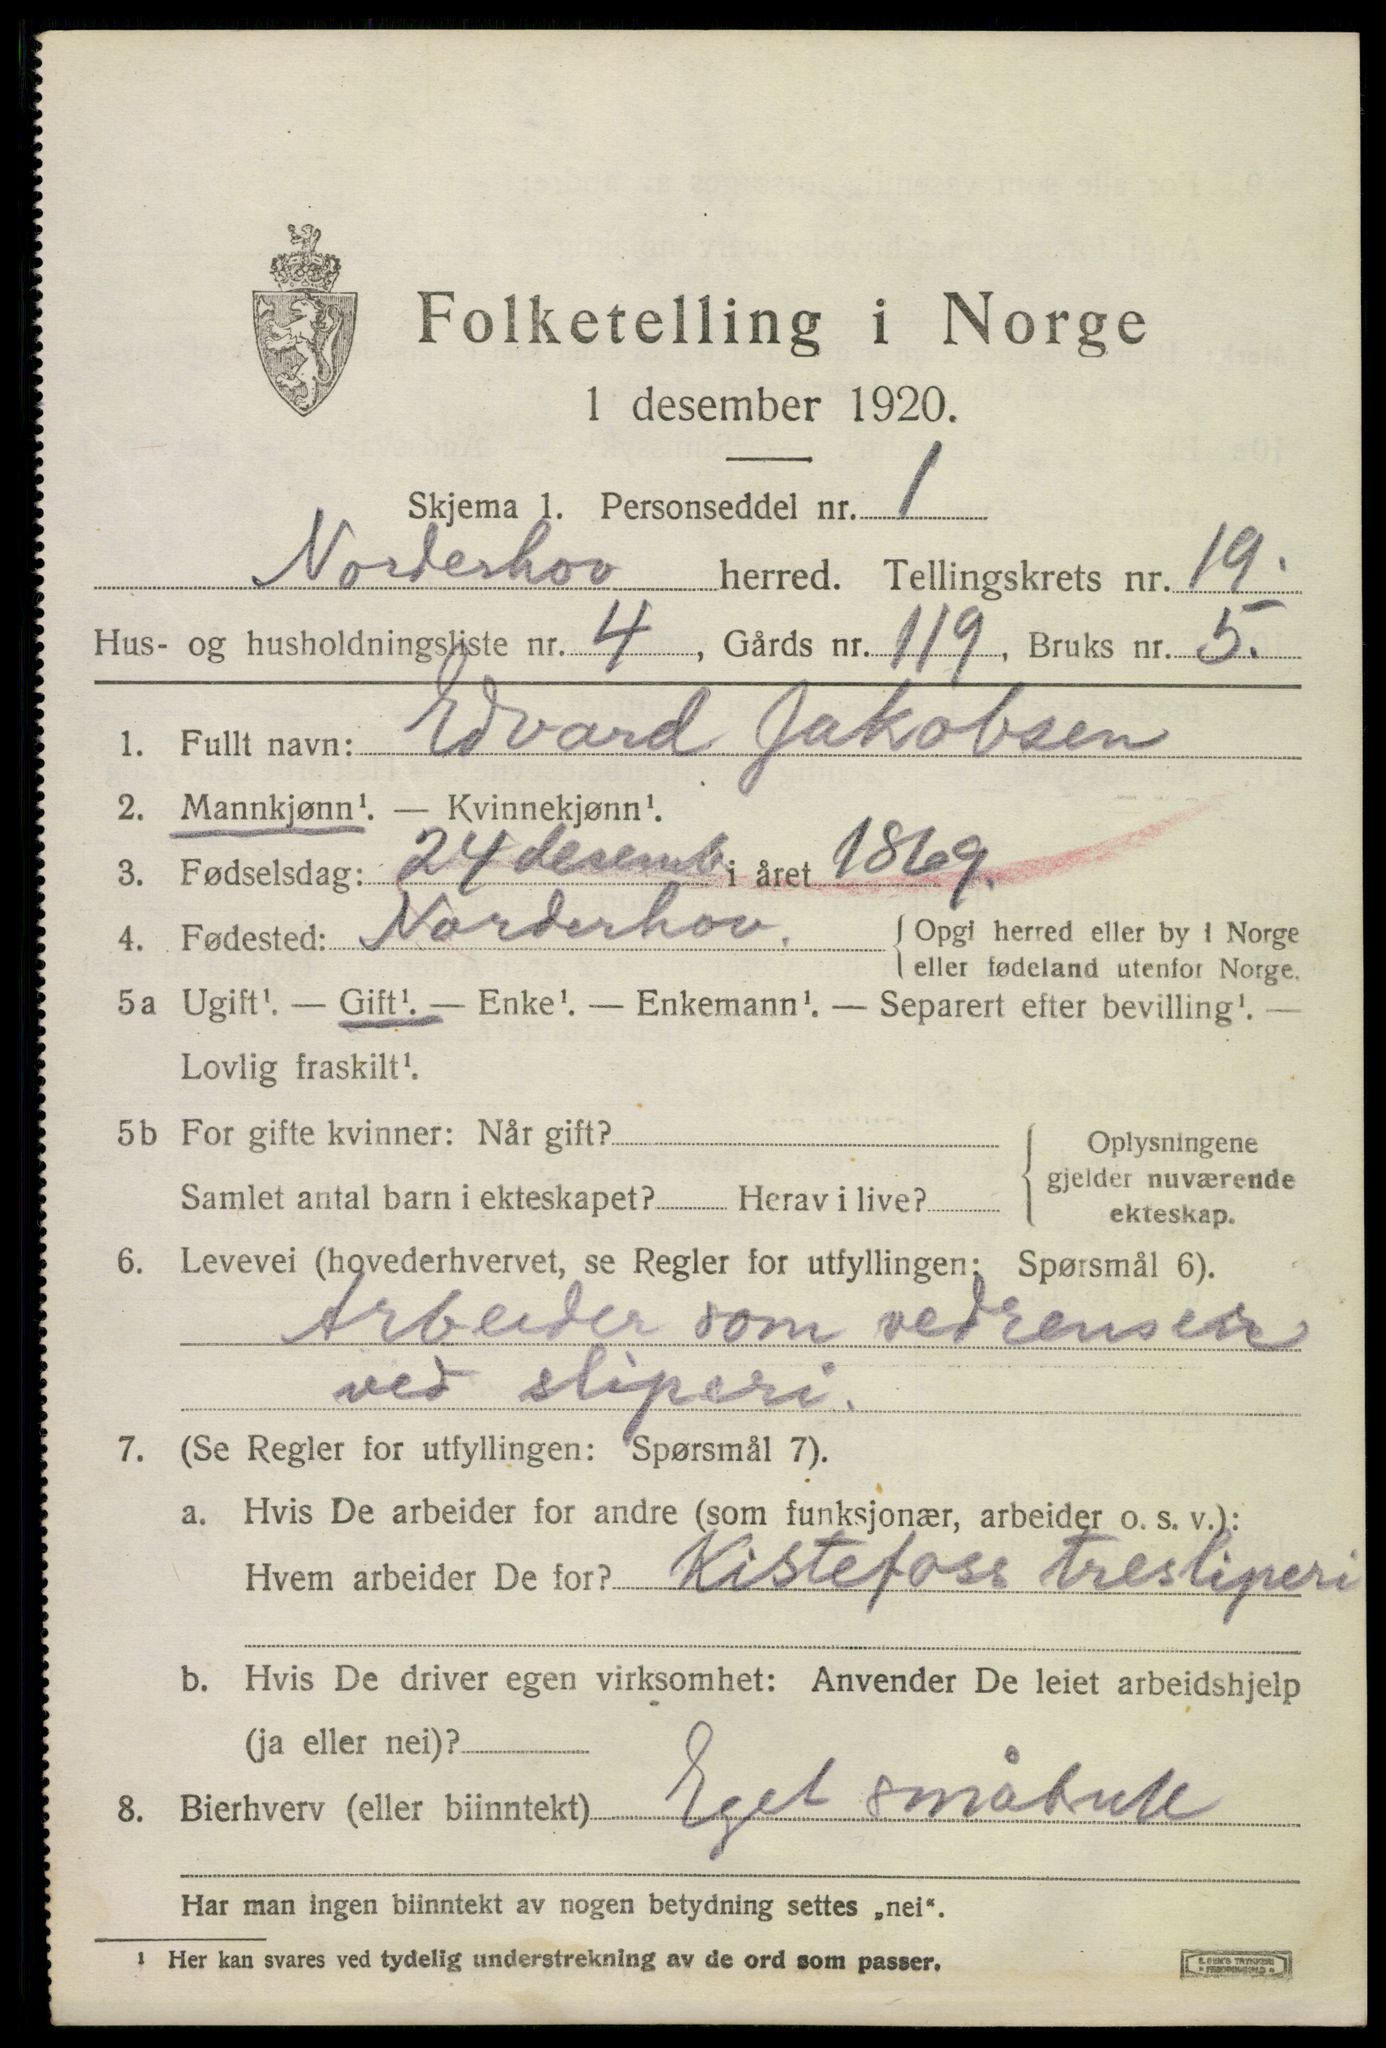 Folketelling i Norge
1 desember 1920.
Skjema 1. Personseddel nr. 1
Norderhov herred. Tellingskrets nr. 19.
Hus- og husholdningsliste nr. 4, Gårds nr. 119, Bruks nr. 5.
1. Fullt navn: Edvard Jakobsen
2. Mannkjønn¹. — Kvinnekjønn¹.
3. Fødselsdag: 24 desemb i året 1869.
4. Fødested: Norderhov. { Opgi herred eller by i Norge
eller fødeland utenfor Norge.
5a Ugift¹. — Gift¹. — Enke¹. — Enkemann¹. — Separert efter bevilling¹. —
Lovlig fraskilt¹.
5b For gifte kvinner: Når gift?
Samlet antal barn i ekteskapet? Herav i live?
Oplysningene
gjelder nuværende
ekteskap.
6. Levevei (hovederhvervet, se Regler for utfyllingen: Spørsmål 6).
Arbeider som vedrenser
ved sliperi.
7. (Se Regler for utfyllingen: Spørsmål 7).
a. Hvis De arbeider for andre (som funksjonær, arbeider o. s. v.):
Hvem arbeider De for? Kistefoss tresliperi
b. Hvis De driver egen virksomhet: Anvender De leiet arbeidshjelp
(ja eller nei)?
8. Bierhverv (eller biinntekt) Eget småbruk
Har man ingen biinntekt av nogen betydning settes „nei“.
¹ Her kan svares ved tydelig understrekning av de ord som passer.